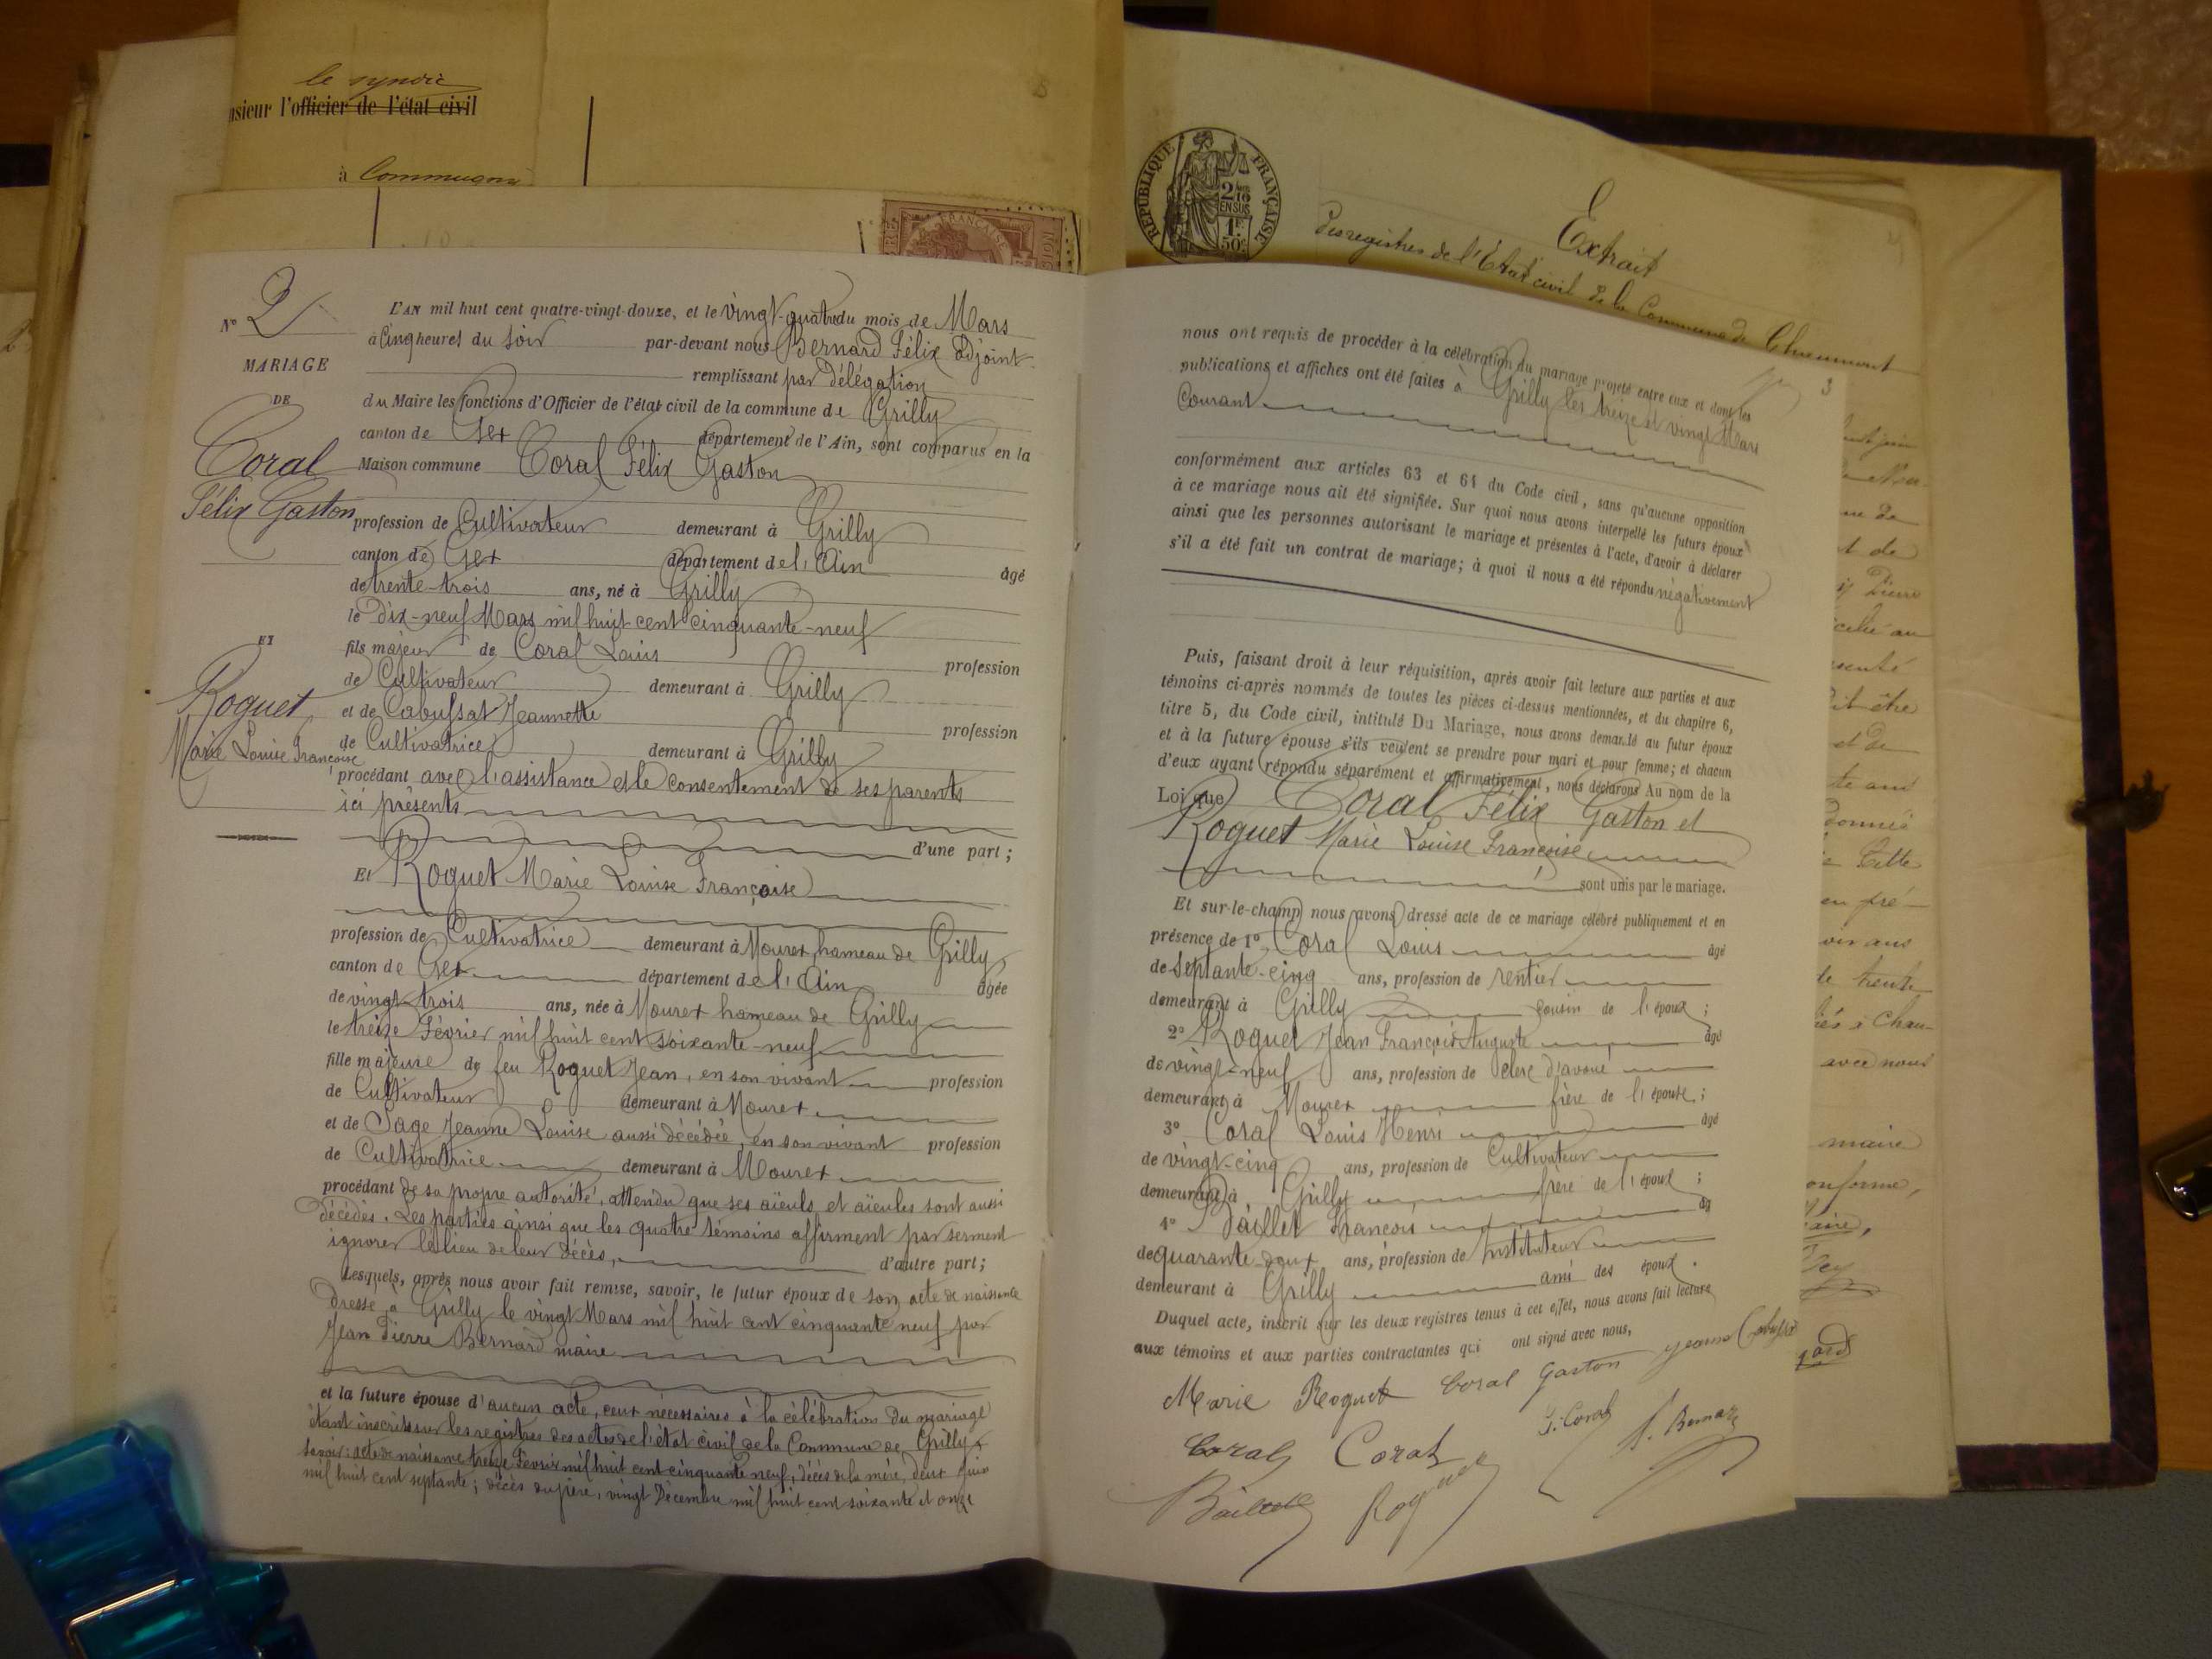 le syndic
nsieur l'officier de l'état civil
à Commugny
FRANÇAISE
RÉPUBLIQUE FRANÇAISE
2/10 EN SUS
1F 50c
Extrait
des registres de l'État civil de la Commune de
Nº 2
MARIAGE
DE
Coral
Félix Gaston
ET
Roquet
Marie Louise Françoise
L'AN mil huit cent quatre-vingt-douze, et le vingt-quatre du mois de Mars
à cinq heures du soir par-devant nous Bernard Félix adjoint
remplissant par délégation
du Maire les fonctions d'Officier de l'état civil de la commune de Grilly
canton de Gex département de l'Ain, sont comparus en la
Maison commune Coral Félix Gaston
profession de Cultivateur demeurant à Grilly
canton de Gex département de l'Ain âgé
de trente-trois ans, né à Grilly
le Dix-neuf Mars mil huit cent cinquante-neuf
fils majeur de Coral Louis profession
de Cultivateur demeurant à Grilly
et de Cabussat Jeannette profession
de Cultivatrice demeurant à Grilly
procédant avec l'assistance et le consentement de ses parents
ici présents
d'une part ;
Et Roquet Marie Louise Françoise
profession de Cultivatrice demeurant à Mourex, hameau de Grilly,
canton de Gex département de l'Ain âgée
de vingt-trois ans, née à Mourex hameau de Grilly
le treize Février mil huit cent soixante-neuf
fille majeure de feu Roquet Jean, en son vivant profession
de Cultivateur demeurant à Mourex
et de Sage Jeanne Louise aussi décédée, en son vivant profession
de Cultivatrice demeurant à Mourex
procédant de sa propre autorité, attendu que ses aïeuls et aïeules sont aussi
décédés. Les parties ainsi que les quatre témoins affirment par serment
ignorer le lieu de leur décès, d'autre part ;
Lesquels, après nous avoir fait remise, savoir, le futur époux de son acte de naissance
dressé à Grilly le vingt Mars mil huit cent cinquante neuf par
Jean Pierre Bernard maire
et la future épouse d'aucun acte, ceux nécessaires à la célébration du mariage
étant inscrits sur les registres des actes de l'état civil de la Commune de Grilly,
savoir : acte de naissance treize Février mil huit cent cinquante neuf, décès de la mère, deux Juin
mil huit cent septante ; décès du père, vingt Décembre mil huit cent soixante et onze
3
nous ont requis de procéder à la célébration du mariage projeté entre eux et dont les
publications et affiches ont été faites à Grilly les treize et vingt Mars
Courant
conformément aux articles 63 et 64 du Code civil, sans qu'aucune opposition
à ce mariage nous ait été signifiée. Sur quoi nous avons interpellé les futurs époux
ainsi que les personnes autorisant le mariage et présentes à l'acte, d'avoir à déclarer
s'il a été fait un contrat de mariage ; à quoi il nous a été répondu négativement
Puis, faisant droit à leur réquisition, après avoir fait lecture aux parties et aux
témoins ci-après nommés de toutes les pièces ci-dessus mentionnées, et du chapitre 6,
titre 5, du Code civil, intitulé Du Mariage, nous avons demandé au futur époux
et à la future épouse s'ils veulent se prendre pour mari et pour femme ; et chacun
d'eux ayant répondu séparément et affirmativement, nous déclarons Au nom de la
Loi que Coral Félix Gaston et
Roquet Marie Louise Françoise
sont unis par le mariage.
Et sur-le-champ nous avons dressé acte de ce mariage célébré publiquement et en
présence de 1º Coral Louis âgé
de septante-cinq ans, profession de rentier
demeurant à Grilly cousin de l'époux ;
2º Roquet Jean François Auguste âgé
de vingt-neuf ans, profession de clerc d'avoué
demeurant à Mourex frère de l'épouse ;
3º Coral Louis Henri âgé
de vingt-cinq ans, profession de Cultivateur
demeurant à Grilly frère de l'époux ;
4º Baillet François
de quarante-deux ans, profession de Instituteur
demeurant à Grilly ami des époux.
Duquel acte, inscrit sur les deux registres tenus à cet effet, nous avons fait lecture
aux témoins et aux parties contractantes qui ont signé avec nous,
Marie Roquet Coral Gaston
Coral Coral F. Bernard
Roquet